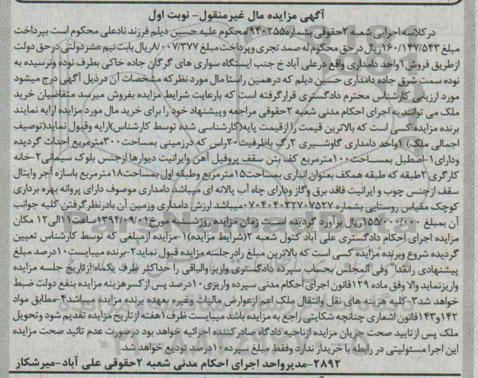 آگهی مزایده مال غیرمنقول- نوبت اول
درکلاسه اجرایی شعبه ۲حقوقی بشماره۹۴۰۲۵۵محکوم علیه حسین دیلم فرزند نادعلی محکوم است بپرداخت
مبلغ ۱۶۰/۱۴۷/۵۴۳ریال در حق محکوم له صمد تجری وپرداخت مبلغ ۸/۰۰۷/۳۷۷ریال بابت نیم عشردولتی درحق دولت
ازطریق فروش ۱واحد دامداری واقع درعلی آباد خ جنب ایستگاه سواری های گرگان جاده خاکی بطرف نوده ونرسیده به
نوده سمت شرق جاده دامداری حسین دیلم که درهمین راستا مال مورد نظرکه مشخصات آن درذیل آگهی درج میشود
مورد ارزیابی کارشناس محترم دادگستری قرارگرفته است که بارعایت شرایط مزایده بفروش میرسد متقاضیان خرید
ملک می توانند به اجرای احکام مدنی شعبه ۲حقوقی مراجعه وپیشنهاد خود را برای خرید مال مورد مزایده ارایه نمایند
برنده مزایده کسی است که بالاترین قیمت را ازقیمت پایه(کارشناسی شده توسط کارشناس)ارایه وقبول نماید(توصیف
اجمالی ملک) ۱واحد دامداری گاوشیری ۲رگ باظرفیت۲۰راس که درزمینی بمساحت۳۰۰مترمربع احداث گردیده
ودارای۱-اصطبل بمساحت۱۰۰مترمربع کف بتن سقف پروفیل آهن وایرانیت دیوارها ازجنس بلوک سیمانی۲-خانه
کارگری ۲طبقه که طبقه همکف بعنوان انباری بمساحت۱۵مترمربع وطبقه اول بمساحت۱۸مترمربع باسازه آجر وایتال
سقف ازجنس چوب و ایرانیت فاقد برق وگاز ودارای چاه آب پالانه ای میباشد دامداری موصوف دارای پروانه بهره برداری
کوچک مقیاس روستایی بشماره ۰۷۰۴۰۴۰۳۲۷۰۷۵۲۷میباشد ارزش دامداری وزمین آن بادرنظرگرفتن کلیه جوانب
آن بمبلغ ۱۵۵/۰۰۰/۰۰۰ریال برآورد گردیده است. زمان مزایده روزشنبه مورخ۱۳۹۴/۰۹/۰۱ساعت۱۱الی۱۲ مکان
مزایده اجرای احکام دادگستری علی آباد کتول شعبه ۲(شرایط مزایده)۱-مزایده ازمبلغی که توسط کارشناس تعیین
گردیده شروع وبرنده مزایده کسی است که بالاترین مبلغ رادرجلسه مزایده قبول نماید۲-برنده میبایست۱۰درصد مبلغ
پیشنهادی رانقدا" وفی المجلس بحساب سپرده دادگستری واریز والباقی را حداکثر ظرف یکماه ازتاریخ جلسه مزایده
واریزنماید والا وفق ماده ۱۲۹قانون اجرای احکام مدنی سپرده واریزی۱۰درصد پس ازکسرهزینه مزایده بنفع دولت ضبط
خواهد شد۳-کلیه هزینه های نقل وانتقال ملک اعم ازعوارض مالیات وغیره بعهده برنده مزایده میباشد۴-مطابق مواد
۱۴۲و۱۴۳قانون اشعاری چنانچه شکایتی راجع به مزایده باشد میبایست ظرف ۱هفته ازتاریخ مزایده تقدیم شود وتحویل
ملک پس ازتایید صحت جریان مزایده ازناحیه دادگاه صادرکننده اجرائیه خواهد بود درصورت عدم تائید صحت مزایده
این اجرا مسئولیتی در رابطه با خریدار ندارد وفقط مبلغ سپرده ۱۰درصد تودیع خواهد شد.
۲۸۹۲-مدیرواحد اجرای احکام مدنی شعبه ۲حقوقی علی آباد-میرشکار